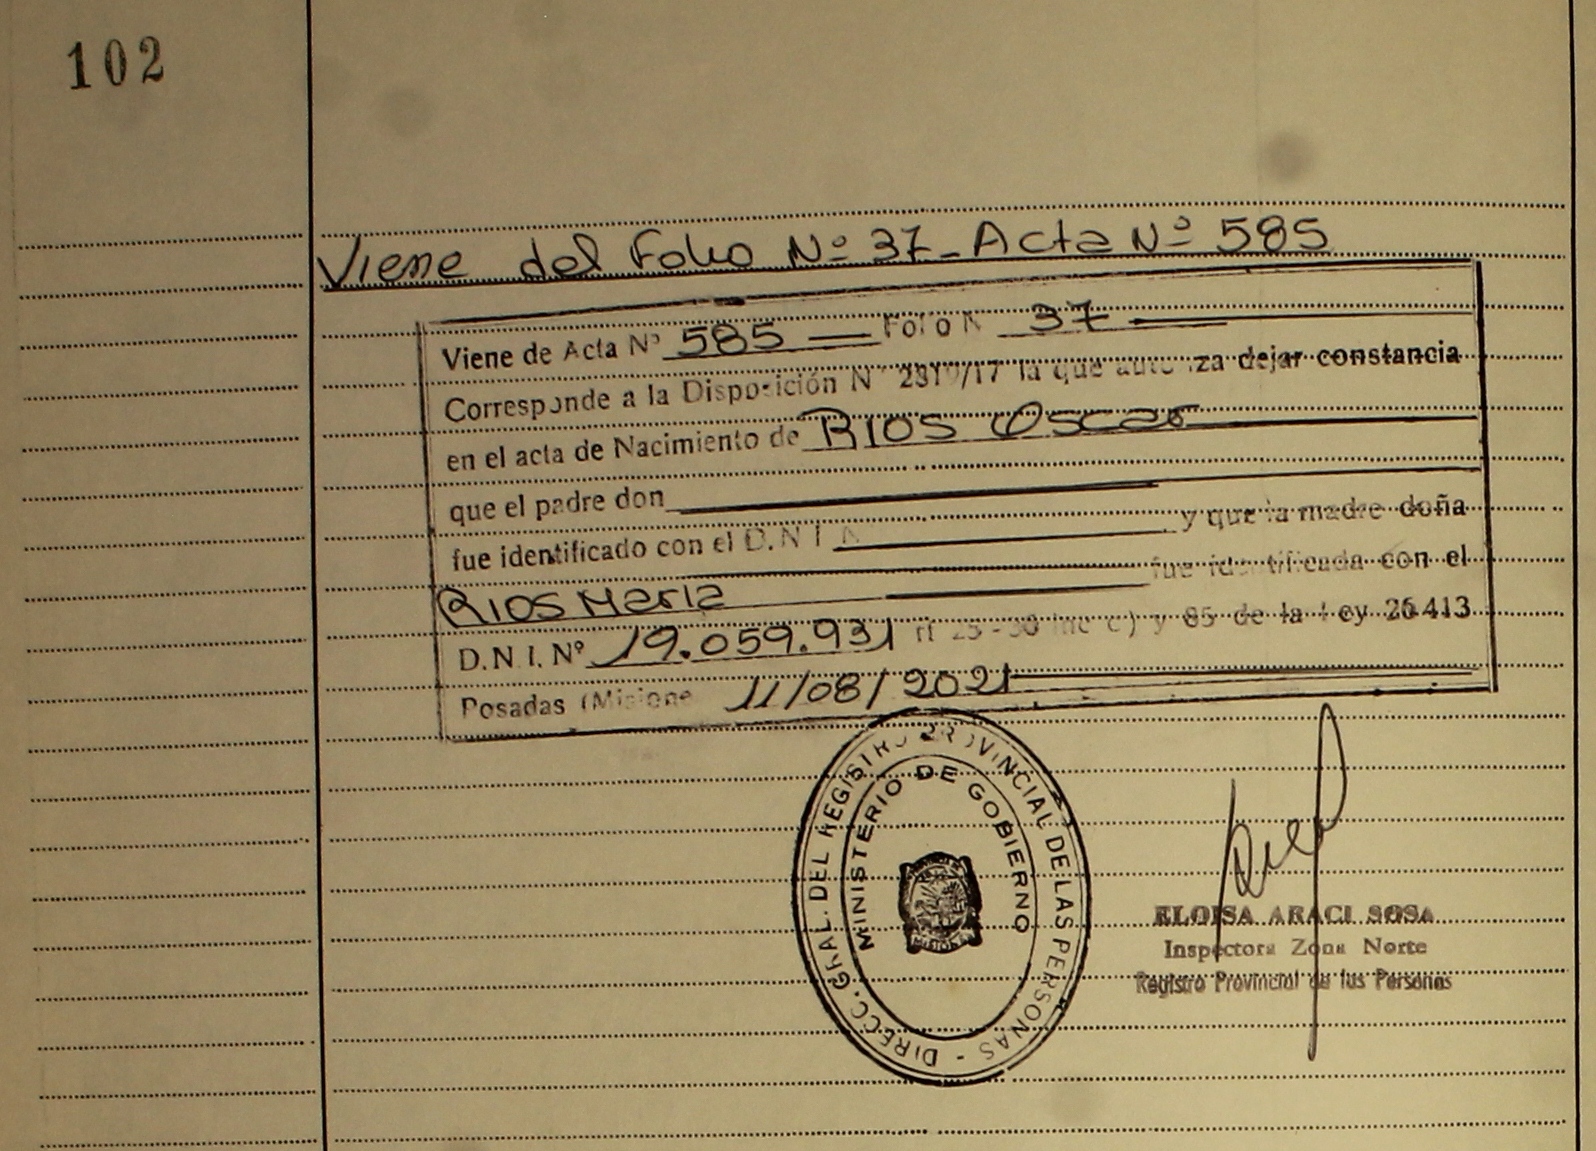 102
Viene del Folio Nº 37 - Acta Nº 585
Viene de Acta Nº 585 Folio N 37
Corresponde a la Disposición Nº /17 la que autoriza dejar constancia
en el acta de Nacimiento de RIOS Oscar
que el padre don
fue identificado con el D.N.I. N y que la madre doña
RIOS Maria fue identificada con el
D.N.I. Nº 19.059.931 y 85 de la Ley 26.413
Posadas (Misiones 11/08/2021
DIRECC. GRAL. DEL REGISTRO PROVINCIAL DE LAS PERSONAS -
MINISTERIO DE GOBIERNO
ELOISA ARACI SOSA
Inspectora Zona Norte
Registro Provincial de las Personas